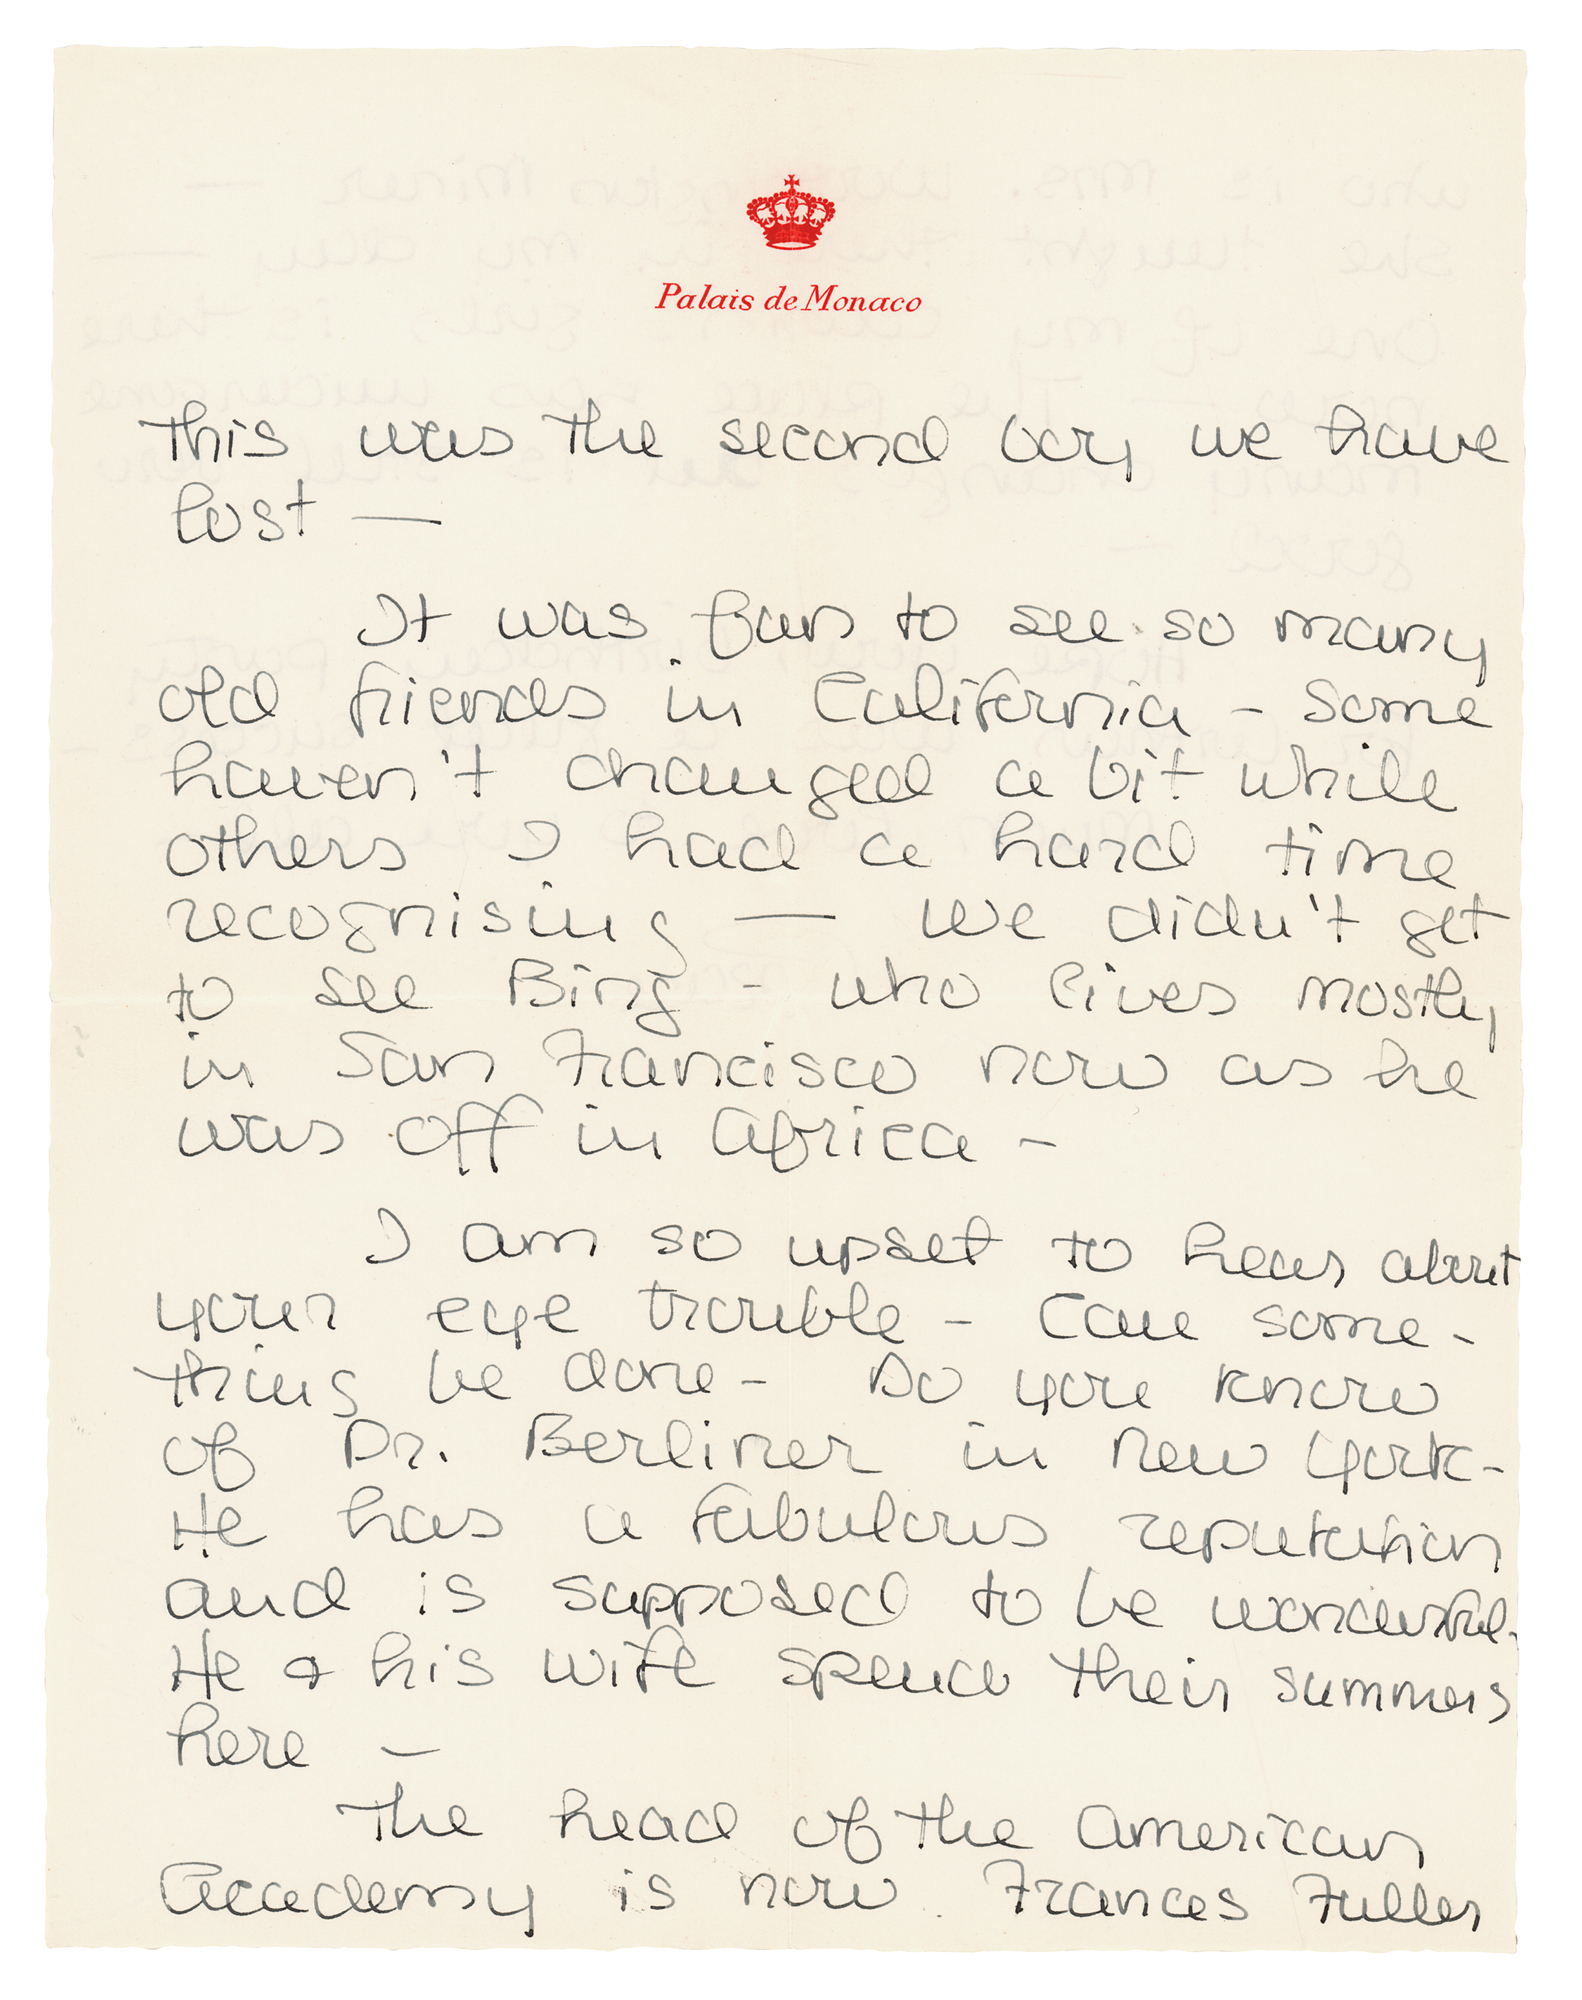 Palais de Monaco
this was the second boy we have
lost —
It was fun to see so many
old friends in California - some
haven't changed a bit while
others I had a hard time
recognising — we didn't get
to see Bing - who lives mostly
in San Francisco now as he
was off in Africa -
I am so upset to hear about
your eye trouble - Can some-
thing be done - Do you know
of Dr. Berliner in New York -
He has a fabulous reputation
and is supposed to be wonderful.
He & his wife spend their summers
here -
The head of the American
Academy is now Frances Fuller